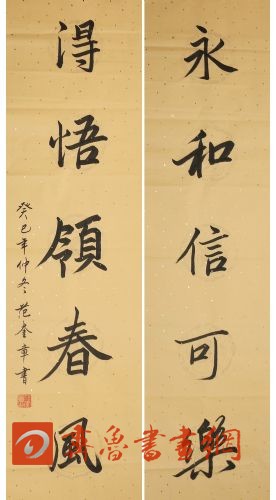 永和信可樂
得悟領春風
癸巳年仲冬 范奎章書
東魯書畫網